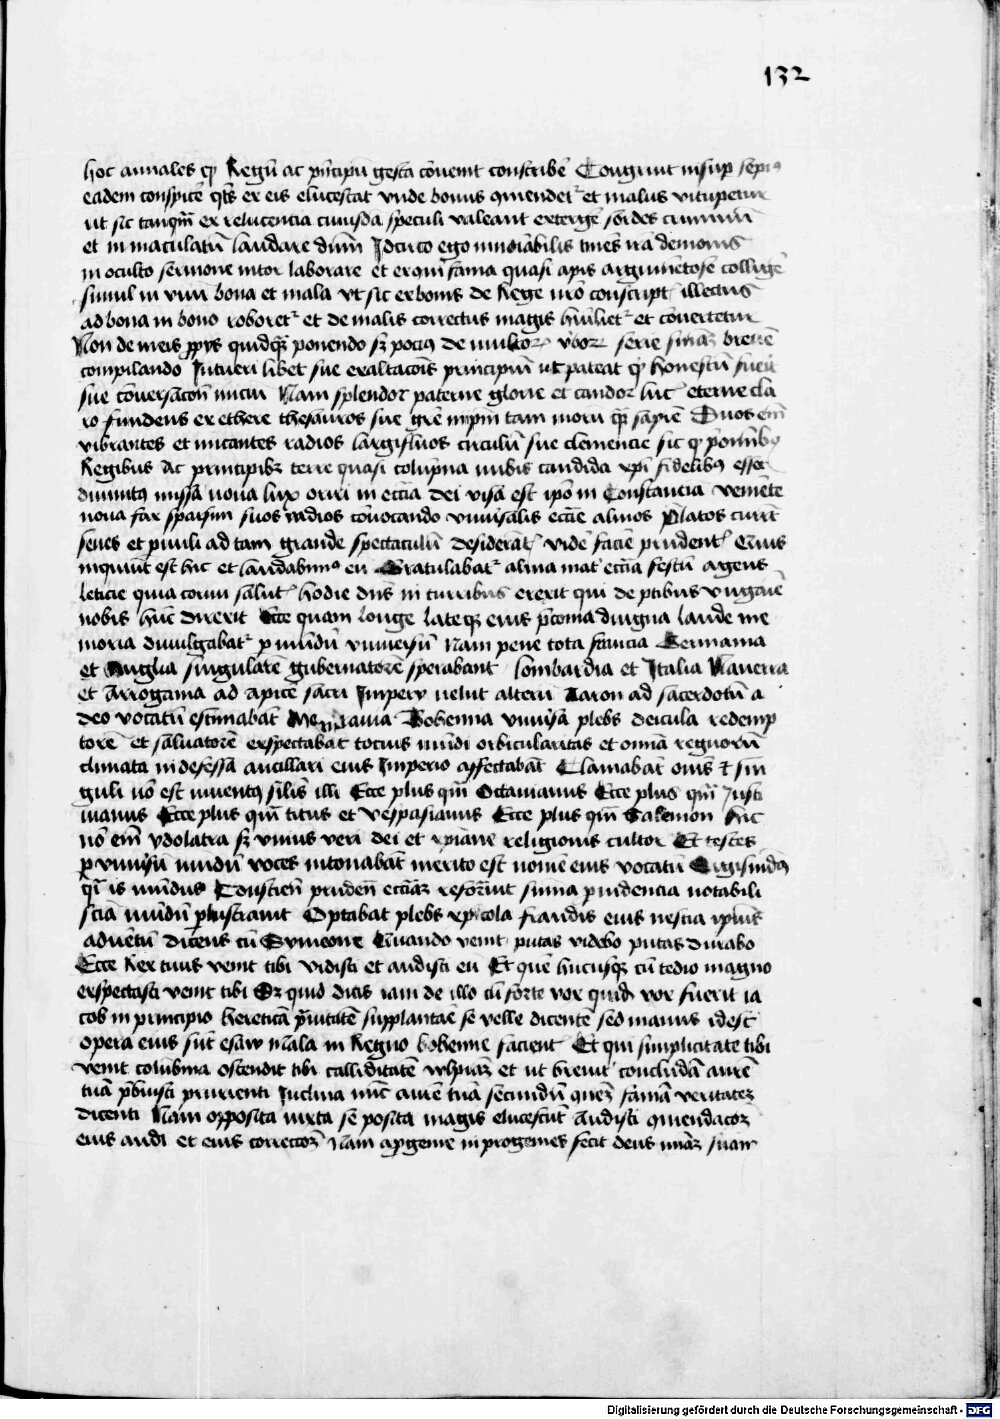 132
hoc annales q Regū ac pͥncipū gesta cōvenit conscribē Congruit insup sepiꝯ
eadem conspicē qͣtꝯ ex eis elucescat unde bonus cōmendetᷣ et malus vituperetur
ut sic tanqͣm ex relucencia cuiusdā speculi valeant extergē sordes criminū
et in maculatū laudare dūm Idcirco ego in
in oculto sermone nitor laborare et exqͥri fama quasi apis argumētose colligē
simul in unū bona et mala ut sic ex bonis de Rege vͦro conscript illectus
ad bona in bono roboretᷣ et de malis correctus magis hūilietᷣ et cōvertetur
Non de meis ꝓpͥis quidqͣꝫ ponendo sꝫ pociꝯ de multoꝝ vboꝝ serie sūmaꝫ brevē
compilando Intueri libet sue exaltacōis principiū ut pateat qͣ honestū fuerit
sue cōversacōni iniciū Nam splendor paterne glorie et candor lucᷣ eterne cla
ro fundens ex ethere thesauros sue grē in ipm̄ tam morū qͣꝫ sapiē Duos em̄
vibrantes et micantes radios largifluos circulū sue clemencie sic q pͥ omībꝯ
Regibus ac principibꝫ terre quasi colūpna nubis candida xpͥi fidelibꝯ esset
divinitꝯ missa nova lux oriri in ecclīa dei visa est ipō in Constancia veniēte
nova fax sparsim suos radios cōvocando univͥsalis ecclīe almos Platos currūt
senes et pͥvuli ad tam grande spectaculū desiderātᷣ vidē faciē prudentᷣ Quis
inquiūt est hic et laudabimꝯ eū Gratulabatᷣ alma matᷣ ecclīa festū agens
leticie quia cornu salutᷣ hodie dn̄s in turribus erexit qui de ptibus Vngarie
nobis hūc direxit Ecce quam longe lateqꝫ eius pͥconia digna laude me
moria divulgabatᷣ p mūdū universū Nam pene tota francia Germania
et Anglia singularē gubernatorē sperabant lombardia et Italia Navarra
et Arrogania ad apicē sacri Imperii velut alterū Aaron ad sacerdotiū a
deo vocatū estimabāt Moravia Bohemia univͥsa plebs deicula redemp
torē et salvatorē exspectabat tocius mūdi orbicularitas et omīa regnorū
climata indefessa ancillari eius Imperio affectabāt Clamabāt om̄s et sin
guli nō est inventꝯ silis illi Ecce plus qͣm Octavianus Ecce plus qͣm Justi
nianus Ecce plus qͣm titus et vespasianus Ecce plus qͣm Salemon hic
nō em̄ ydolatra sꝫ unius veri dei et xpͥiane religionis cultor Et testes
p univͥsū mūdū voces intonabāt merito est nomē eius vocatū Sigismūdꝯ
qͥ is mūdus Conscien prudēn ecclīaꝫ reformīt sūma prudencia notabili
sciā mūdū plustravit Optabat plebs xpͥicola fraudis eius nescia ipͥius
adventū dicens cū Symeone Quando venit putas videbo putas durabo
Ecce Rex tuus venit tibi vidisti et audisti eū Et quē hucusqꝫ cū tedio magno
exspectasti venit tibi Sꝫ quid dicis iam de illo cū forte vox quidē vox fuerit ia
cob in principio hereticā pͣvitatē supplantāe se velle dicente sed manus idest
opera eius sūt esaw Mala in Regno bohemie facient Et qui simplicitate tibi
venit columbina ostendit tibi calliditatē vulpināꝫ et ut breviᷣ concludā aurē
tuā pͥbuisti prurienti Inclina nūc aurē tuā secundū quoꝫ famā veritateꝫ
dicenti Nam opposita iuxta se posita magis elucescūt Audisti cōmendacōꝫ
eius audi et eius correccōꝫ Nam a pͥgenie in progenies fecit deus mīaꝫ suam
Digitalisierung gefördert durch die Deutsche Forschungsgemeinschaft - DFG